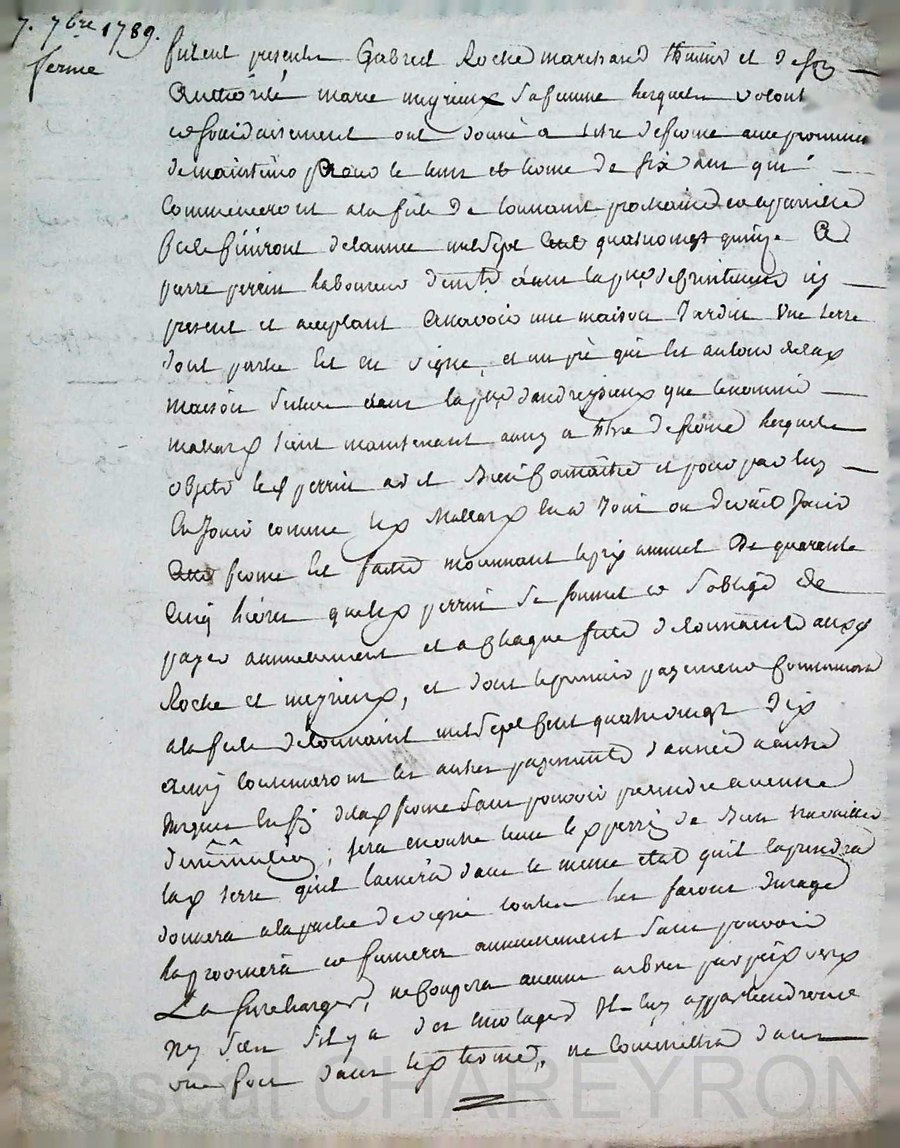 7. 7bre 1789.
ferme
furent presents Gabriel Roche marchand et de son
authorité marie meyrieux sa femme lesquels volont
et solidairement ont donné a titre de ferme avec promesse
de maintenir pour le tems et terme de six ans qui
commenceront a la fete de toussaint prochaine et a pareille
fete finiront de l'année mil sept cent quatre vingt quinze a
pierre perrin laboureur dans la psse de ici
present et acceptant a savoir une maison jardin une terre
dont partie est en vigne, et un pré qui est autour de lax
maison situés dans la psse d'andreysieux que le nommé
mallarx tient maintenant aussy a titre de ferme lesquels
objets le x perrin a dit bien connaitre et pour par luy
en jouir comme lex mallarx en a joui ou deub jouir
cette ferme est faitte moyennant le prix annuel de quarante
cinq livres que lex perrin se soumet et s'oblige de
payer annuellement et a chaque fete de toussaint auxx
Roche et meyrieux, et dont le premier payement commencera
a la fete de toussaint mil sept cent quatre vingt dix
ainsy continueront les autres payements d'année a autre
jusques en fin de lax ferme sans pouvoir pretendre aucune
diminution, sera encore tenu lex perrin de bien travailler
lax terre qu'il laissera dans le meme etat qu'il la prendra
donnera a la partie de vigne toutes les façons d'usage
la provignera et fumera annuellement sans pouvoir
La surcharger, ne coupera aucun arbres par pied verx
ny sec s'il y a des emolages ils luy appartiendront
une fois dans lex terme, ne commettra dans
Pascal CHAREYRON